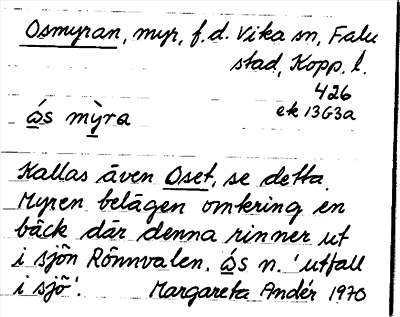 Osmyran, myr, f.d. Vika sn, Falu
stad, Kopp. l.
426
ek 13G3a
ώs mỳra
Kallas även Oset, se detta.
Myren belägen omkring en
bäck där denna rinner ut
i sjön Rönnvalen. ώs n. 'utfall
i sjö'. Margareta Andér 1970